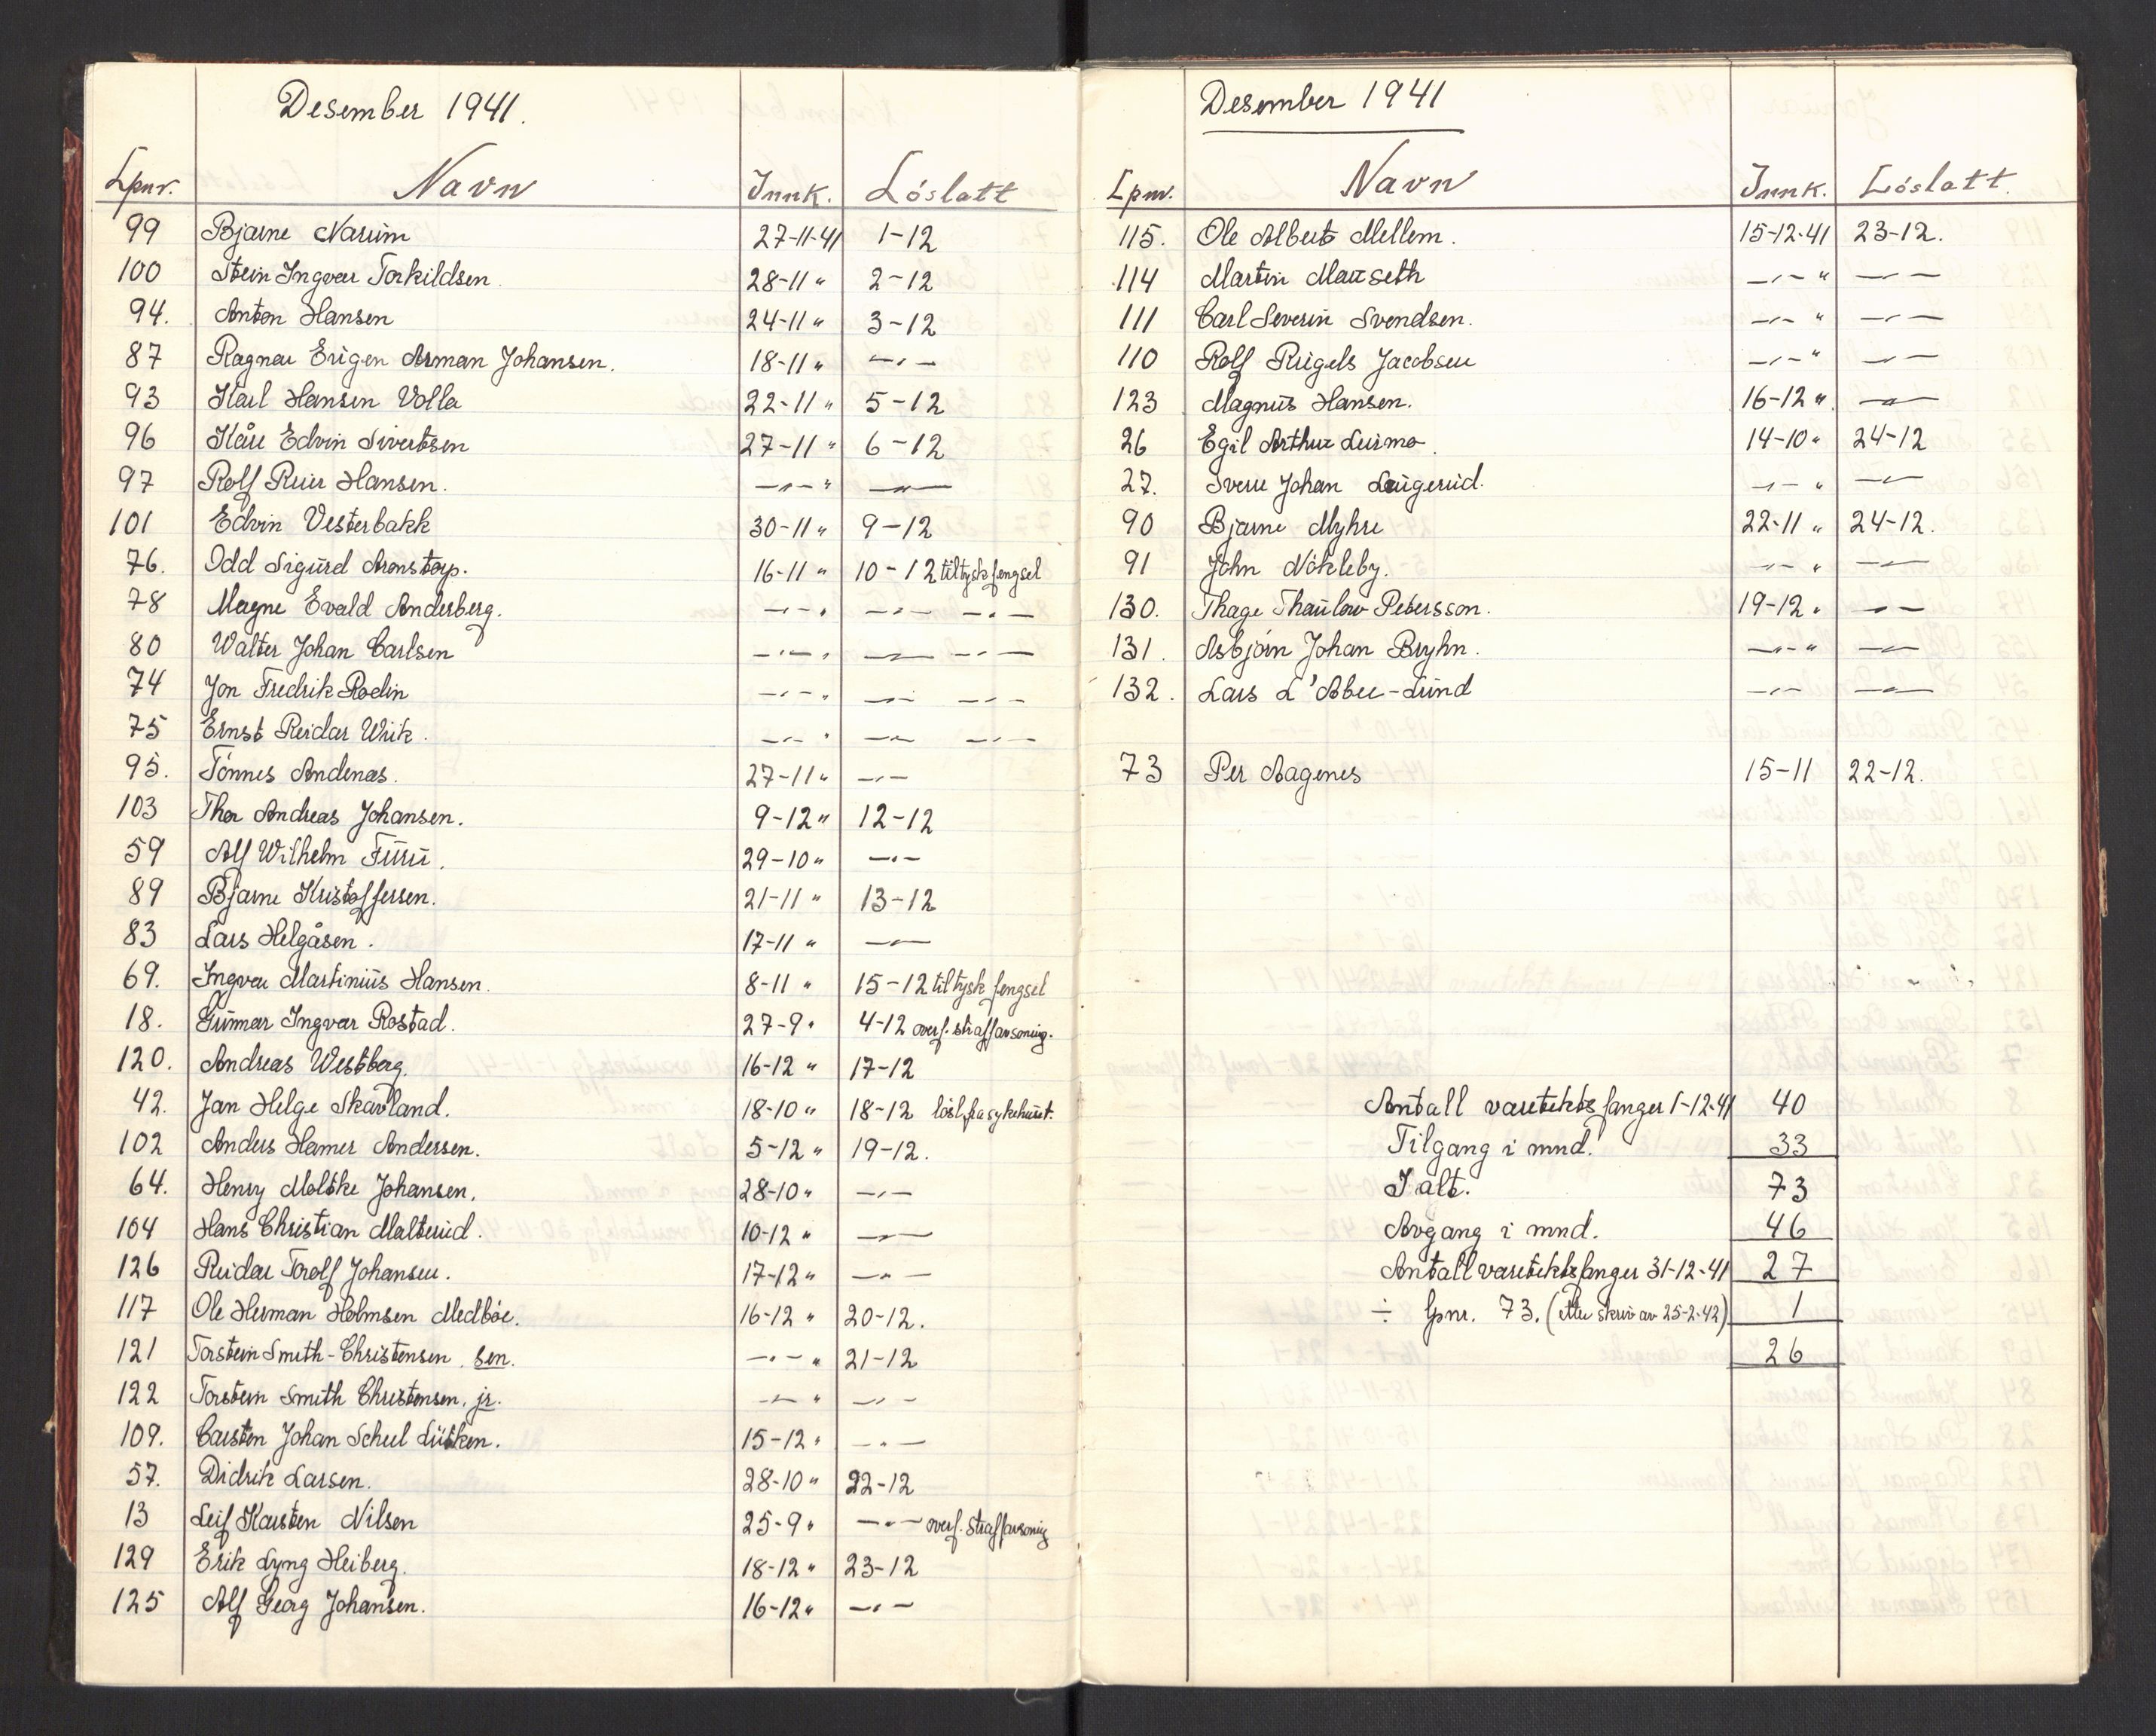 Desember 1941.
Lpnr. Navn Innk. Löslatt
99 Bjarne Narum 27-11-41 1-12
100 Stein Ingvar Torkildsen 28-11 " 2-12
94. Anton Hansen 24-11 " 3-12
87 Ragnar Eugen Arman Johansen. 18-11 " —"—
93 Karl Hansen Volla 22-11 " 5-12
96 Kåre Edvin Sivertsen 27-11 " 6-12
97 Rolf Reier Hansen. —"— " —"—
101 Edvin Vesterbakk 30-11 " 9-12
76. Odd Sigurd Aronstorp. 16-11 " 10-12 til tysk fengsel
78 Magne Evald Anderberg. —"— " —"— —"—
80 Walter Johan Carlsen —"— " —"— —"—
74 Jon Fredrik Rodin —"— " —"— —"—
75 Ernst Reidar Wiik. —"— " —"— —"—
95. Tönnes Andenæs. 27-11 " —"—
103 Thor Andreas Johansen. 9-12 " 12-12
59 Alf Wilhelm Furu. 29-10 " —"—
89 Bjarne Kristoffersen. 21-11 " 13-12
83 Lars Helgåsen. 17-11 " —"—
69. Ingvar Martinius Hansen. 8-11 " 15-12 til tysk fengsel
18. Gunnar Ingvar Rostad. 27-9 " 4-12 overf. straffavsoning.
120. Andreas Westberg. 16-12 " 17-12
42. Jan Helge Skavland. 18-10 " 18-12 lösl. fra sykehuset.
102 Anders Hamer Andersen. 5-12 " 19-12.
64. Henry Moltke Johansen. 28-10 " —"—
104 Hans Christian Malterud. 10-12 " —"—
126 Reidar Torolf Johansen. 17-12 " —"—
117 Ole Herman Holmsen Medböe. 16-12 " 20-12.
121 Torstein Smith-Christensen, sen. —"— " 21-12
122 Torstein Smith Christensen, jr. —"— " —"—
109. Carsten Johan Scheel Lütken. 15-12 " —"—
57. Didrik Larsen. 28-10 " 22-12
13 Leif Karsten Nilsen 25-9 " —"— overf. straffavsoning
129 Erik Lyng Heiberg. 18-12 " 23-12
125 Alf Georg Johansen. 16-12 " —"—
Desember 1941
Lpnr. Navn Innk. Löslatt.
115. Ole Alberto Mellem. 15-12-41 23-12.
114 Martin Mauseth —"— " —"—
111 Carl Severin Svendsen. —"— " —"—
110 Rolf Riegels Jacobsen —"— " —"—
123 Magnus Hansen. 16-12 " —"—
26 Egil Arthur Leirmo. 14-10 " 24-12
27. Sverre Johan Laugerud. —"— " —"—
90 Bjarne Myhre 22-11 " 24-12.
91 John Nökleby. —"— " —"—
130. Thage Thaulow Petersson. 19-12 " —"—
131. Asbjörn Johan Bryhn. —"— " —"—
132. Lars L'Abee-Lund —"— —"—
73 Per Aagenes 15-11 22-12.
Antall varetektsfanger 1-12-41 40
Tilgang i mnd. 33
I alt. 73
Avgang i mnd. 46
Antall varetektsfanger 31-12-41 27
÷ lpnr. 73. (etter skriv av 25-2-42) 1
26